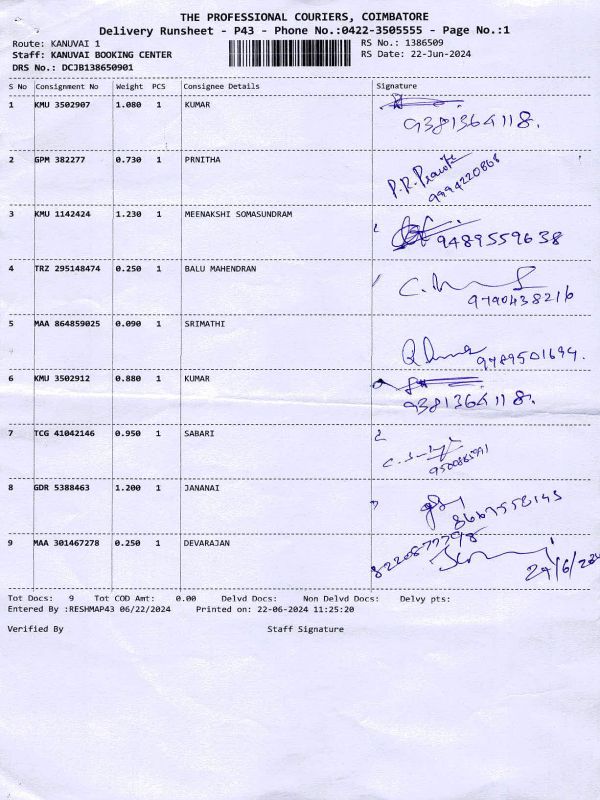 THE PROFESSIONAL COURIERS, COIMBATORE
Delivery Runsheet - P43 - Phone No.:0422-3505555 - Page No.:1
Route: KANUVAI 1 RS No.: 1386509
Staff: KANUVAI BOOKING CENTER RS Date: 22-Jun-2024
DRS No.: DCJB138650901
S No Consignment No Weight PCS Consignee Details Signature
1 KMU 3502907 1.080 1 KUMAR
9381364118.
2 GPM 382277 0.730 1 PRNITHA
9994220868
3 KMU 1142424 1.230 1 MEENAKSHI SOMASUNDRAM
9489559638
4 TRZ 295148474 0.250 1 BALU MAHENDRAN
9790438216
5 MAA 864859025 0.090 1 SRIMATHI
9789501694.
6 KMU 3502912 0.880 1 KUMAR
9381364118.
7 TCG 41042146 0.950 1 SABARI
8 GDR 5388463 1.200 1 JANANAI
8667558143
9 MAA 301467278 0.250 1 DEVARAJAN
Tot Docs: 9 Tot COD Amt: 0.00 Delvd Docs: Non Delvd Docs: Delvy pts:
Entered By :RESHMAP43 06/22/2024 Printed on: 22-06-2024 11:25:20
Verified By Staff Signature